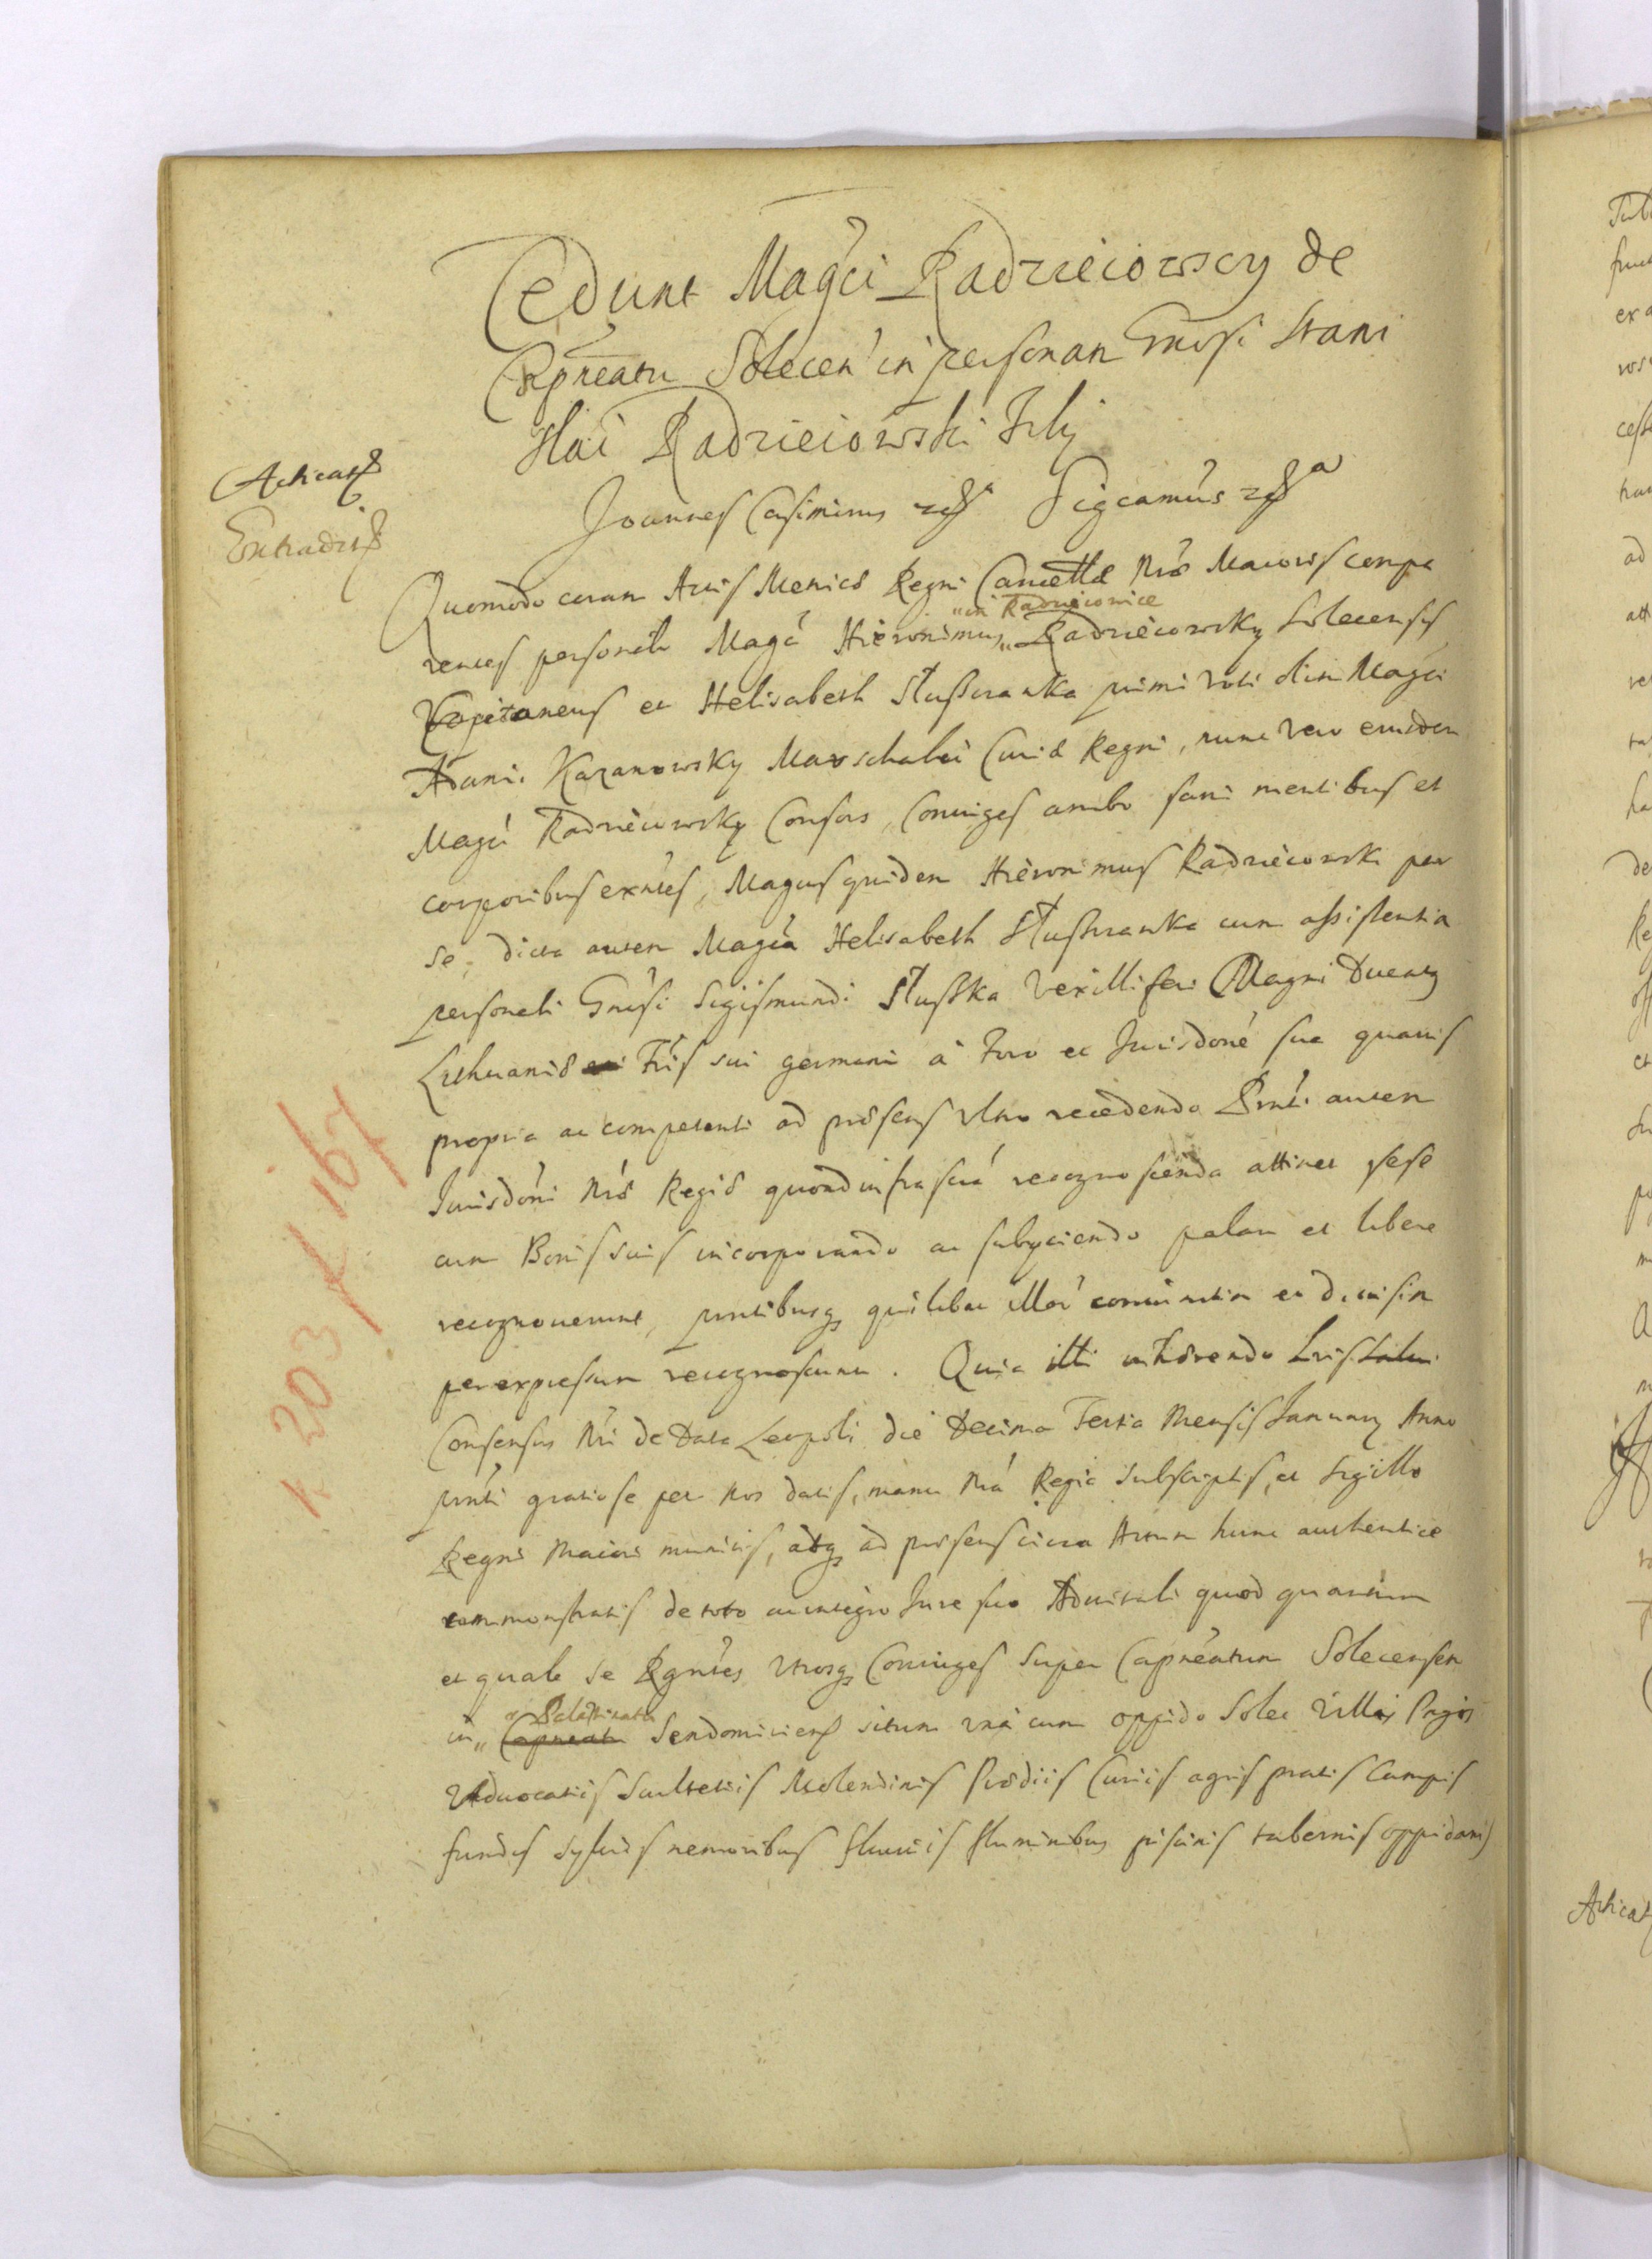 Cedunt Mag͠ci Radzieiowscy de
Cap͠neatu Solecen̄ in personam Gn͠osi Stani
slai Radzieiowski Filij
Joannes Casimirus Sig͠camus
Acticat
Extradit
Quomodo coram Actis Meticæ Regni Cancellæ N͠ræ Maioris compa
rentes personalr Mag͠c Hieronimus „in Radzieiowice Radzieiowsky Solecensis
Capitaneus et Helisabeth Słuszczanka primi voti olim Mag͠ci
Adami Kazanowsky Marschalci Curiæ Regni, nunc vero eiusdem
Mag͠ci Radzieiowsky Consors, Coniuges ambo sani mentibus et
corporibus ex͠ntes, Mag͠cus quidem Hieronimus Radzieiowski per
se, dicta autem Mag͠ca Helisabeth Słuszczanka cum assistentia
personali Gn͠osi Sigismundi Słuszka Vexilliferi Magni Ducatus
Lithuaniæ Fr͠is sui germani à Foro et Jurisd͠one sua quavis
propria ac competenti ad præsens vltro recedendo P͠nti autem
Jurisd͠oni N͠ræ Regiæ quoad infrascrā recognoscenda attinet sese
cum Bonis suis incorporando ac subyciendo palam et libere
recognoverunt, p͠ntibusq quilibet illor̄ coniunctim et divisim
per expressum recognoscunt. Quia illi inhærendo L͠ris
Consensus N͠ri de Data Leopoli die Decima Tertia Mensis January Anno
p͠nti gratiose per nos datis, manu N͠ra Regia subscriptis, et sigillo
Regni Maiori munitis, atq ad præsens circa Actum hunc authentice
commonstratis de toto et integro Jure suo Aduitali quod quantum
et quale se R͠gn͠tes vtrosq Coniuges super Cap͠neatum Solecensem
in „Palatinatu Cap͠neatu Sendomiriens situm vnà cum oppido Solec Villis Pagis
Advocatiis Scultetiis Molendinis Prædiis Curiis agris pratis Campis
fundis syluis nemoribus fluuiis fluminibus piscinis tabernis oppidanis
k 203 f 167